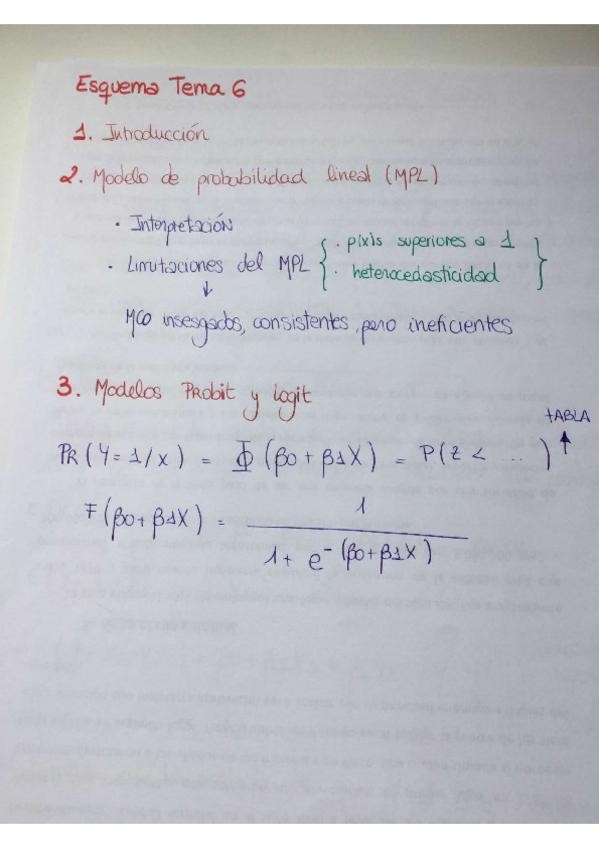 Esquema Tema 6
1. Introducción
2. Modelo de probabilidad lineal (MPL)
· Interpretación
· Limitaciones del MPL { · píxis superiores a 1 }
· heterocedasticidad
↓
MCO insesgados, consistentes, pero ineficientes
3. Modelos Probit y logit
TABLA
PR (Y = 1/x) = Φ (β0 + β1X) = P(Z < ... ) ↑
F (β0 + β1X) = 1 / (1 + e^-(β0+β1X))